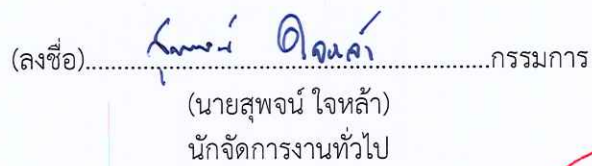 (ลงชื่อ).......สุพจน์ ใจหล้า.......กรรมการ
(นายสุพจน์ ใจหล้า)
นักจัดการงานทั่วไป